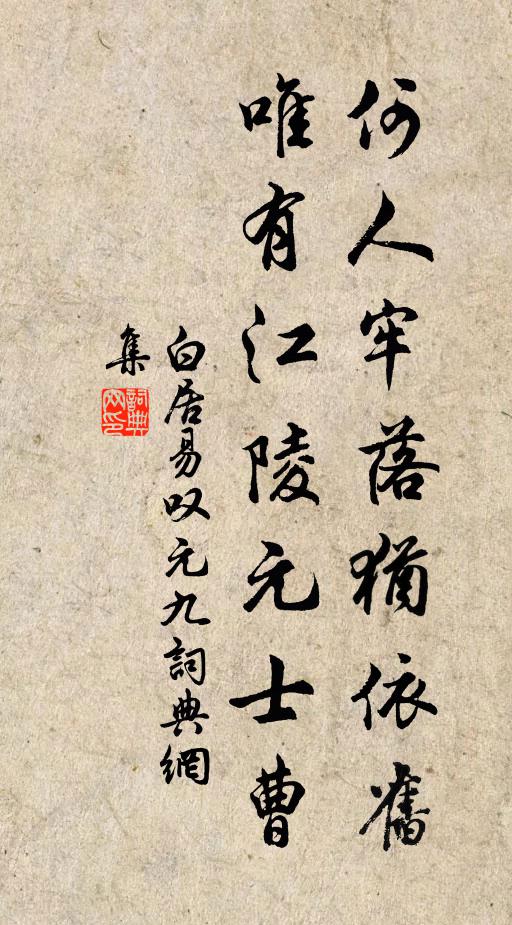 何人牢落猶依舊
唯有江陵元士曹
白居易叹元九詞典網
集
詞典網印